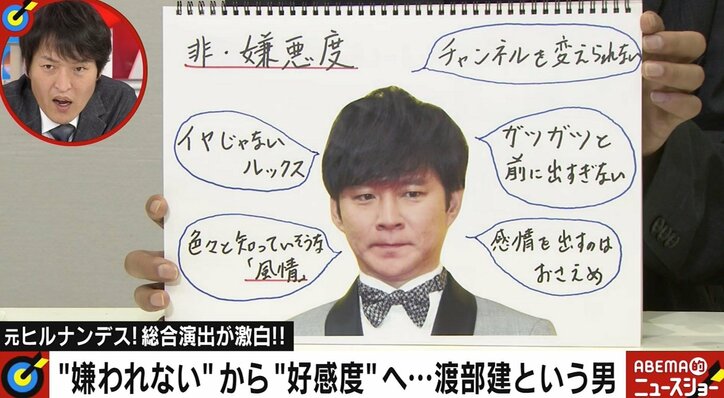 非・嫌悪度
チャンネルを変えられない
イヤじゃない
ルックス
ガツガツと
前に出すぎない
色々と知っていそうな
「風情」
感情を出すのは
おさえめ
元ヒルナンデス!総合演出が激白!!
"嫌われない"から"好感度"へ…渡部建という男
ABEMA的
ニュースショー